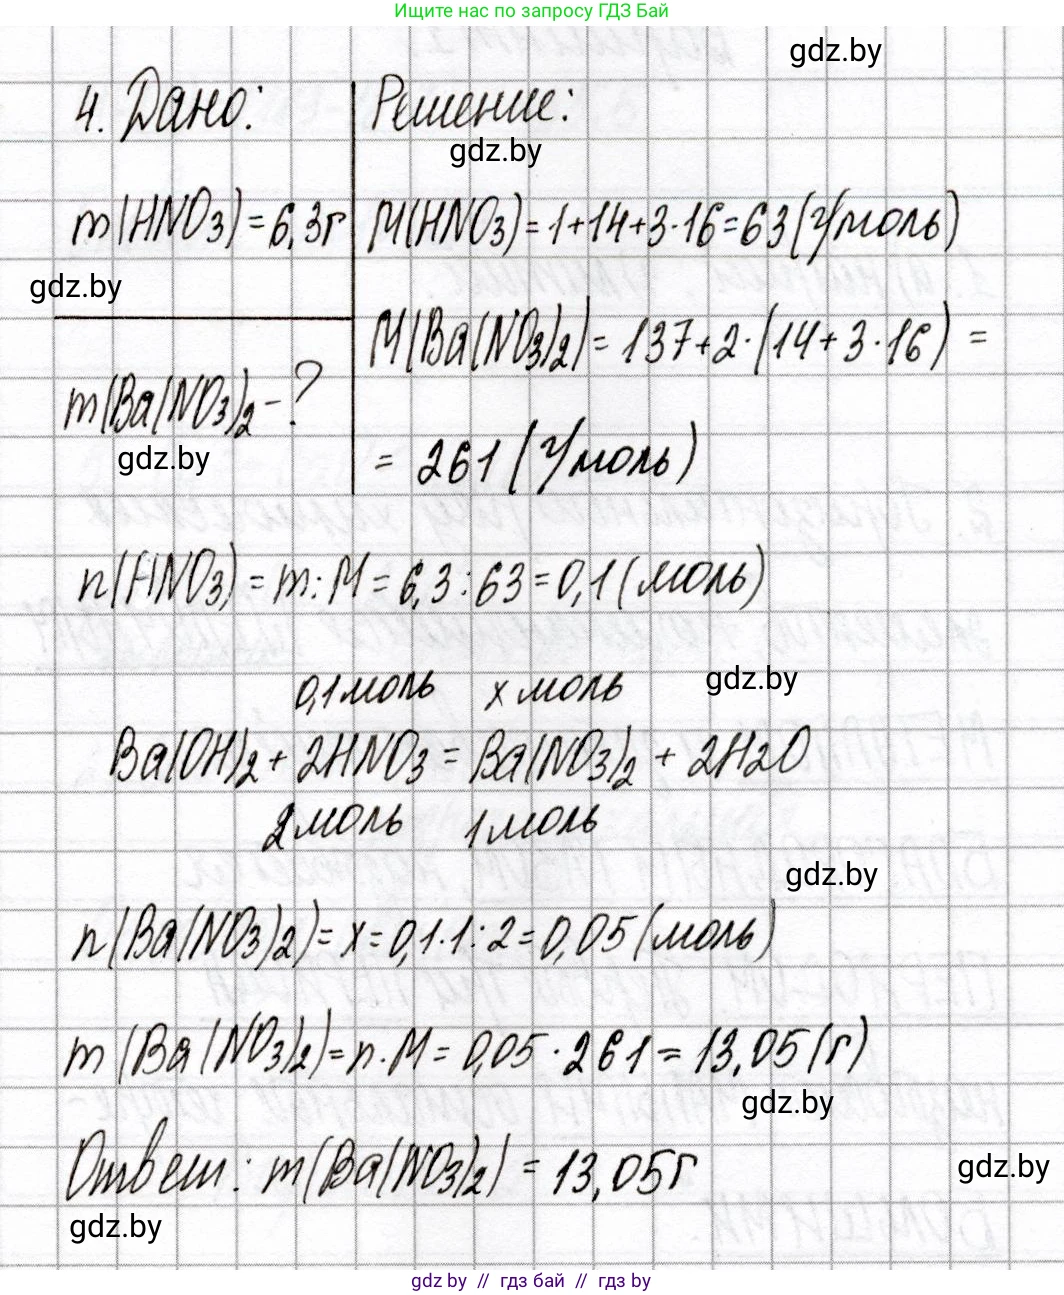 Ищите нас по запросу ГДЗ Бай
gdz.by
4. Дано:
Решение:
gdz.by
m(HNO3)=6,3г
M(HNO3)=1+14+3·16=63(г/моль)
gdz.by
M(Ba(NO3)2)=137+2·(14+3·16)=
m(Ba(NO3)2-?
gdz.by
=261(г/моль)
n(HNO3)=m:M=6,3:63=0,1(моль)
0,1моль x моль
gdz.by
Ba(OH)2+2HNO3=Ba(NO3)2+2H2O
2моль 1моль
gdz.by
n(Ba(NO3)2)=x=0,1·1:2=0,05(моль)
m(Ba(NO3)2)=n·M=0,05·261=13,05(г)
gdz.by
Ответ: m(Ba(NO3)2)=13,05г
gdz.by
gdz.by
gdz by // гдз бай // гдз by